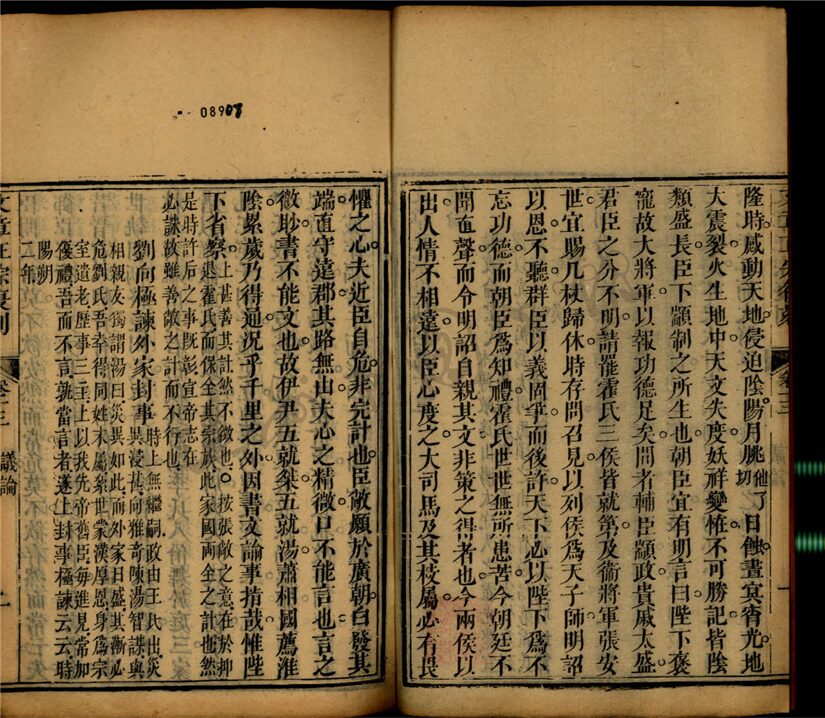 08907
隆時感動天地侵迫陰陽月朓他了切日蝕晝冥宵光地
大震裂火生地中天文失度妖祥變恠不可勝記皆陰
類盛長臣下顓制之所生也朝臣宜有明言曰陛下褒
寵故大將軍以報功德足矣間者輔臣顓政貴戚太盛
君臣之分不明請罷霍氏三侯皆就第及衞將軍張安
世宜賜几杖歸休時存問召見以列侯爲天子師明詔
以恩不聽群臣以義固爭而後許天下必以陛下爲不
忘功德而朝臣爲知禮霍氏世世無所患苦今朝廷不
聞直聲而令明詔自親其文非策之得者也今兩侯以
出人情不相遠以臣心度之大司馬及其枝屬必有畏
懼之心夫近臣自危非完計也臣敞願於廣朝白發其
端直守遠郡其路無由夫心之精微口不能言也言之
微眇書不能文也故伊尹五就桀五就湯蕭相國薦淮
陰累歲乃得通況乎千里之外因書文諭事指哉惟陛
下省察上甚善其計然不徵也○按張敞之意在於抑
退霍氏而保全其宗族此家國兩全之計也然
是時許后之事既彰宣帝志在
必誅故雖善敞之計而不行也
劉向極諫外家封事時上無繼嗣政由王氏出災
異浸甚向雅奇陳湯智謀與
相親友獨謂湯曰災異如此而外家日盛其漸必
危劉氏吾幸得同姓末屬累世蒙漢厚恩身爲宗
室遺老歷事三主上以我先帝舊臣每進見常加
優禮吾而不言孰當言者遂上封事極諫云云時
陽朔
二年
卷三 議論 二